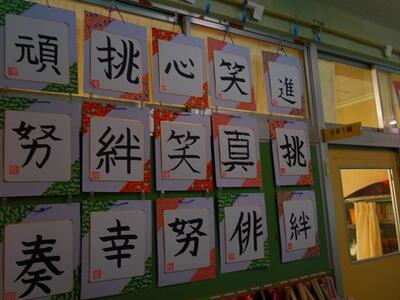 頑挑心笑進
努絆笑真挑
奏幸努俳絆